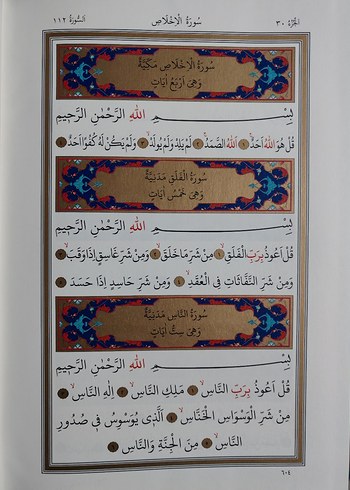 الجزء ٣٠
سُورَةُ الْاِخْلَاصِ
السورة ١١٢
سُورَةُ الْاِخْلَاصِ مَكِّيَّةٌ
وَهِىَ اَرْبَعُ اٰيَاتٍ
بِسْــــمِ اللّٰهِ الرَّحْمٰنِ الرَّحِيمِ
قُلْ هُوَ اللّٰهُ اَحَدٌۚ ١ اَللّٰهُ الصَّمَدُۚ ٢ لَمْ يَلِدْ وَلَمْ يُولَدْۙ ٣ وَلَمْ يَكُنْ لَهُ كُفُوًا اَحَدٌ ٤
سُورَةُ الْفَلَقِ مَدَنِيَّةٌ
وَهِىَ خَمْسُ اٰيَاتٍ
بِسْــــمِ اللّٰهِ الرَّحْمٰنِ الرَّحِيمِ
قُلْ اَعُوذُ بِرَبِّ الْفَلَقِۙ ١ مِنْ شَرِّ مَا خَلَقَۙ ٢ وَمِنْ شَرِّ غَاسِقٍ اِذَا وَقَبَۙ ٣
وَمِنْ شَرِّ النَّفَّاثَاتِ فِى الْعُقَدِۙ ٤ وَمِنْ شَرِّ حَاسِدٍ اِذَا حَسَدَ ٥
سُورَةُ النَّاسِ مَدَنِيَّةٌ
وَهِىَ سِتُّ اٰيَاتٍ
بِسْــــمِ اللّٰهِ الرَّحْمٰنِ الرَّحِيمِ
قُلْ اَعُوذُ بِرَبِّ النَّاسِۙ ١ مَلِكِ النَّاسِۙ ٢ اِلٰهِ النَّاسِۙ ٣
مِنْ شَرِّ الْوَسْوَاسِ الْخَنَّاسِۙ ٤ اَلَّذِى يُوَسْوِسُ فِى صُدُورِ
النَّاسِۙ ٥ مِنَ الْجِنَّةِ وَالنَّاسِ ٦
٦٠٤